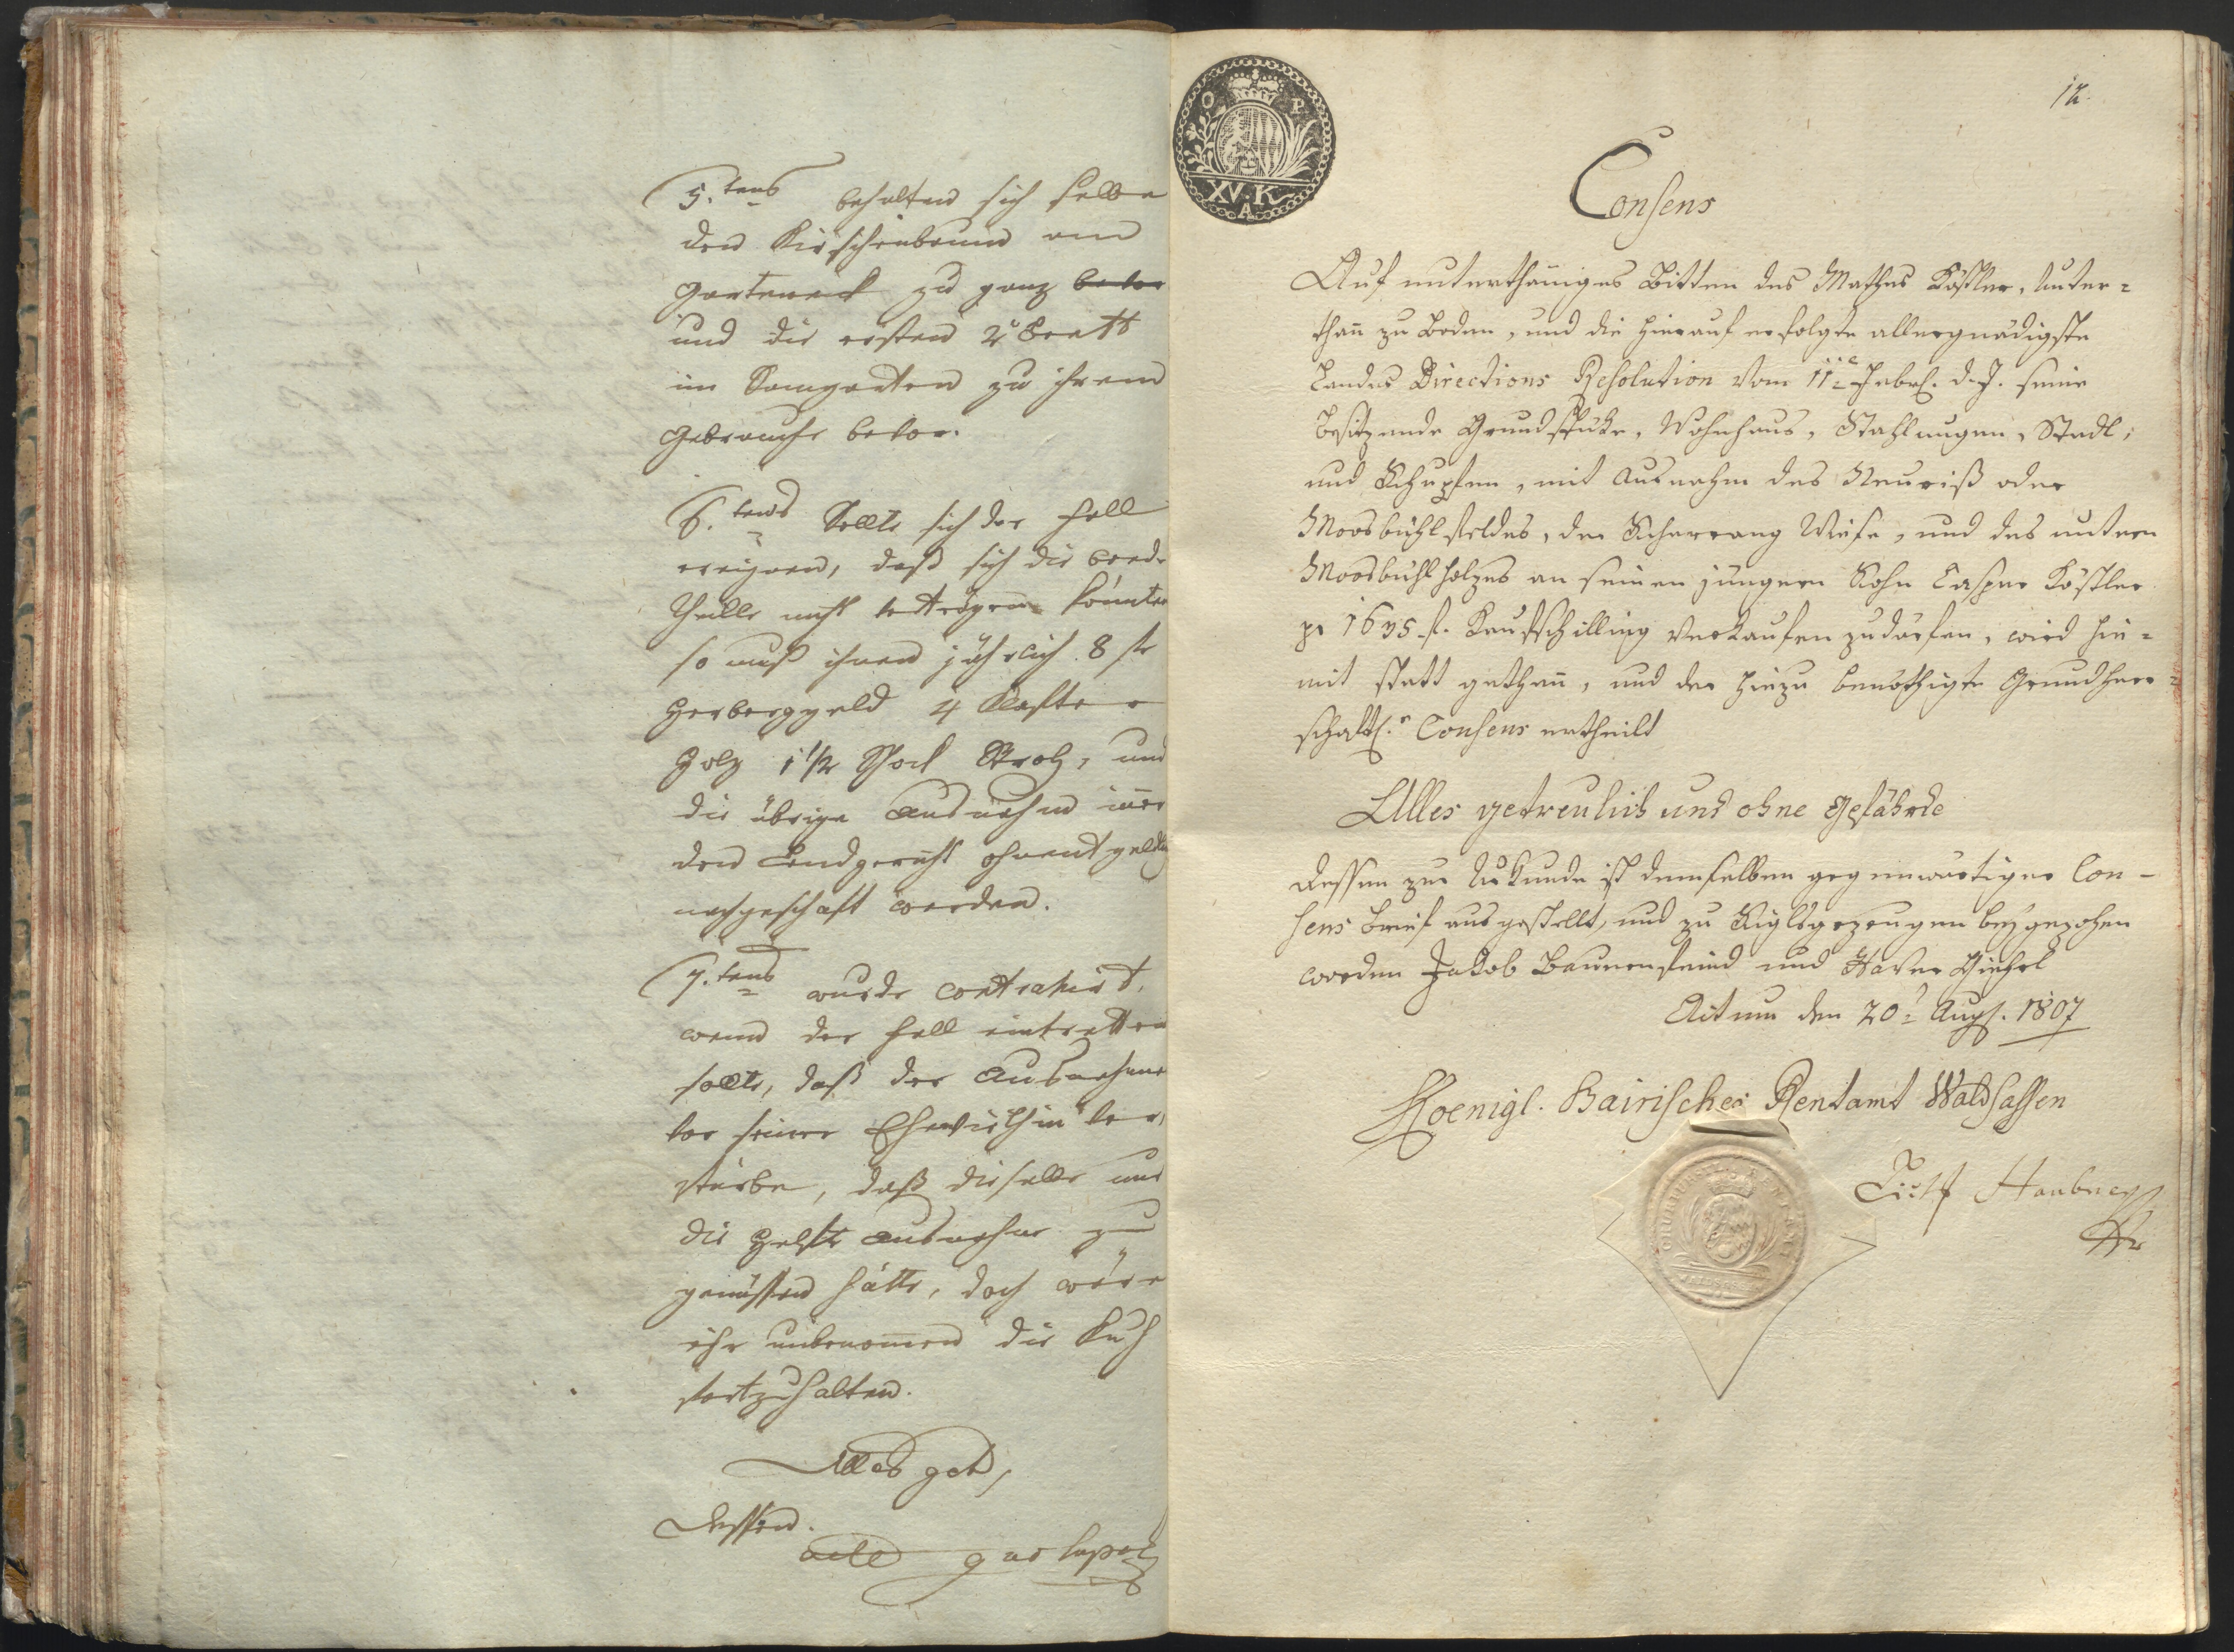 5.tens behalten sich selbe
den Kirschenbaum am
Garteneck zu ganz bevor
und die ersten 2 Bett
im Baumgarten zu ihrem
Gebrauche bevor.
6.tens Sollte sich der Fall
ereignen, daß sich die beede
Theille nicht vertragen könnten
so muß ihnen jährlich 8 fl
Herberggeld 4 Klafter
Holz 1 1/2 Schock Stroh, und
die übrige Ausnahm inner
den Landgericht ohnentgeltl
nachgeschaft werden.
7.tens wurde contrahirt,
wenn der Fall eintretten
sollte, daß der Ausnehmer
vor seiner Ehewirthin ver-
stürbe, daß dieselbe nur
die Helfte Ausnahm zu
genüssen hätte, doch wäre
ihr unbenommen die Kuh
fortzuhalten.
Alles get,
Dessen.
12.
O P
XV. K
A
Consens
Auf unterthäniges Bitten des Mathes Köstler, Unter-
than zu Boden, und die hierauf erfolgte allergnädigste
Landes Directions Resolution vom 11e Febr. d. J. seine
besitzende Grundstüke, Wohnhaus, Stahlungen, Stadl,
und Schupfen, mit Ausnahm des Neuriß oder
Moosbühlfeldes, der Wiese, und des untern
Moosbühlholzes an seinen jüngern Sohn Caspar Köstler
pr 1635 f. Kaufschilling verkaufen zu därfen, wird hie-
mit statt gethan, und der hiezu benöthigte Grundherr-
schaftl.r Consens ertheilt
Alles getreulich und ohne Gefährde
Dessen zur Urkunde ist demselben gegenwärtiger Con-
sens Brief ausgestellt, und zu Siglsgezeugen beygezohen
worden Jakob Baurenfeind und Xaver
Actum den 20t Aug. 1807
Koenigl. Bairisches Rentamt Waldsassen